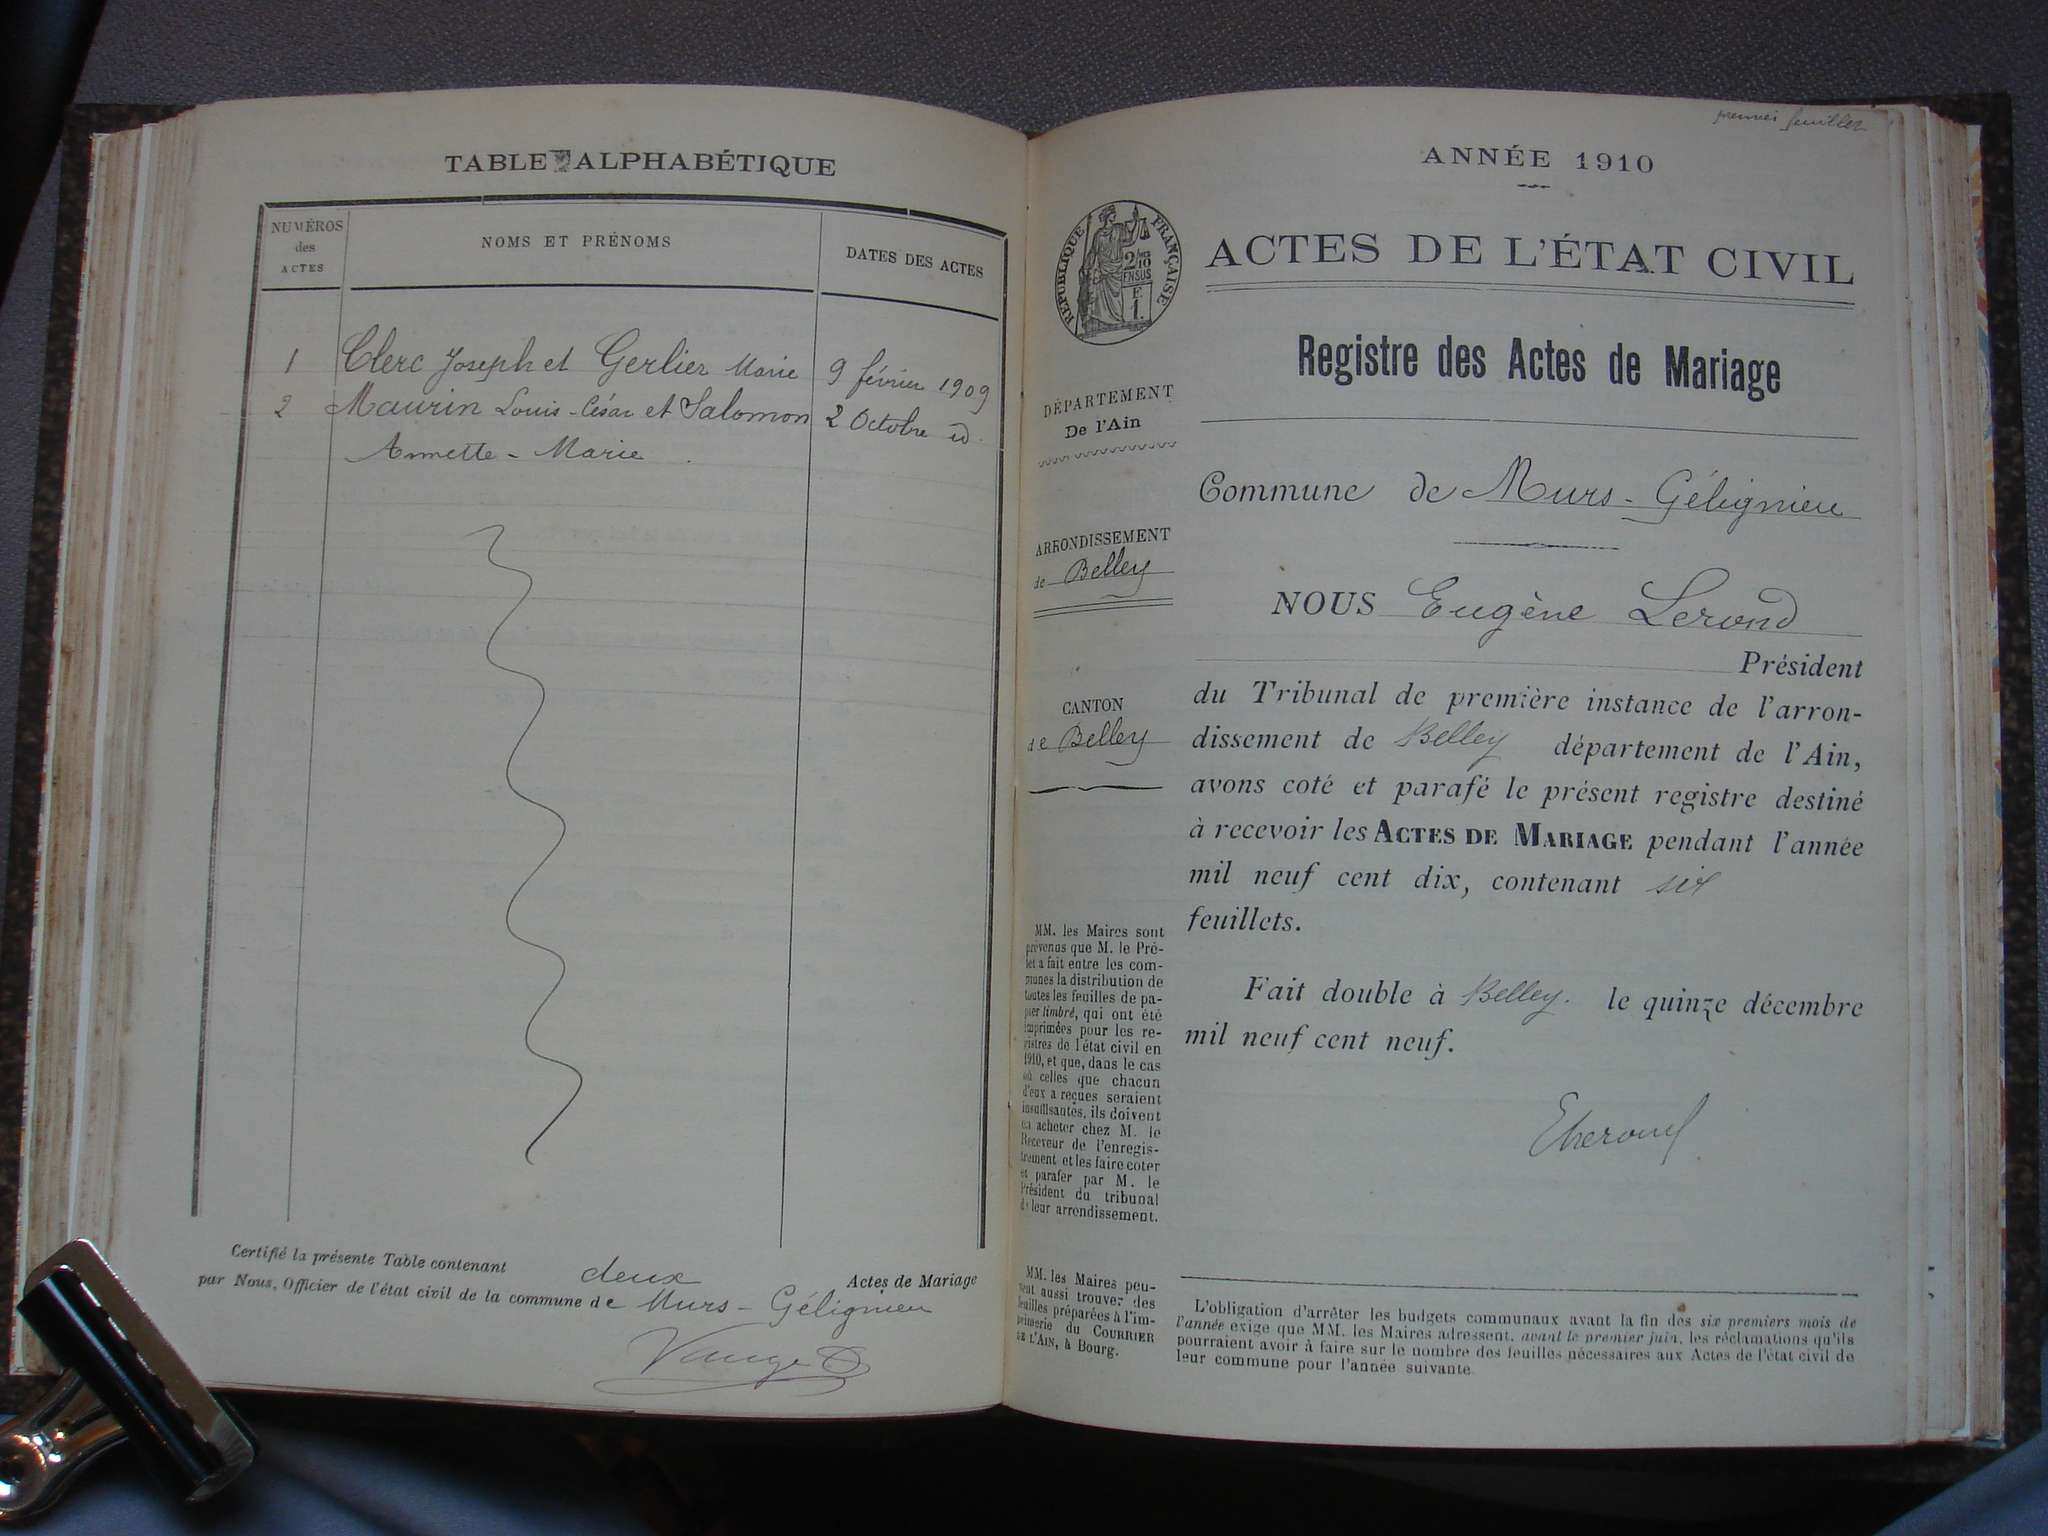 TABLE ALPHABÉTIQUE
NUMÉROS
des
ACTES
NOMS ET PRÉNOMS
DATES DES ACTES
1 Clerc Joseph et Gerlier Marie 9 février 1909
2 Maurin Louis-César et Salomon 2 Octobre id.
Annette - Marie
Certifié la présente Table contenant deux Actes de Mariage
par Nous, Officier de l'état civil de la commune de Murs - Gélignieu
premier feuillet
ANNÉE 1910
RÉPUBLIQUE FRANÇAISE
2/10
EN SUS
F.
1.
ACTES DE L'ÉTAT CIVIL
Registre des Actes de Mariage
DÉPARTEMENT
De l'Ain
ARRONDISSEMENT
de Belley
CANTON
de Belley
MM. les Maires sont
prévenus que M. le Pré-
fet a fait entre les com-
munes la distribution de
toutes les feuilles de pa-
pier timbré, qui ont été
imprimées pour les re-
gistres de l'état civil en
1910, et que, dans le cas
où celles que chacun
d'eux a reçues seraient
insuffisantes, ils doivent
en acheter chez M. le
Receveur de l'enregis-
trement et les faire coter
et parafer par M. le
Président du tribunal
de leur arrondissement.
MM. les Maires peu-
vent aussi trouver des
feuilles préparées à l'im-
primerie du COURRIER
DE L'AIN, à Bourg.
Commune de Murs - Gélignieu
NOUS Eugène Lerond
Président
du Tribunal de première instance de l'arron-
dissement de Belley département de l'Ain,
avons coté et parafé le présent registre destiné
à recevoir les ACTES DE MARIAGE pendant l'année
mil neuf cent dix, contenant six
feuillets.
Fait double à Belley. le quinze décembre
mil neuf cent neuf.
L'obligation d'arrêter les budgets communaux avant la fin des six premiers mois de
l'année exige que MM. les Maires adressent, avant le premier juin, les réclamations qu'ils
pourraient avoir à faire sur le nombre des feuilles nécessaires aux Actes de l'état civil de
leur commune pour l'année suivante.